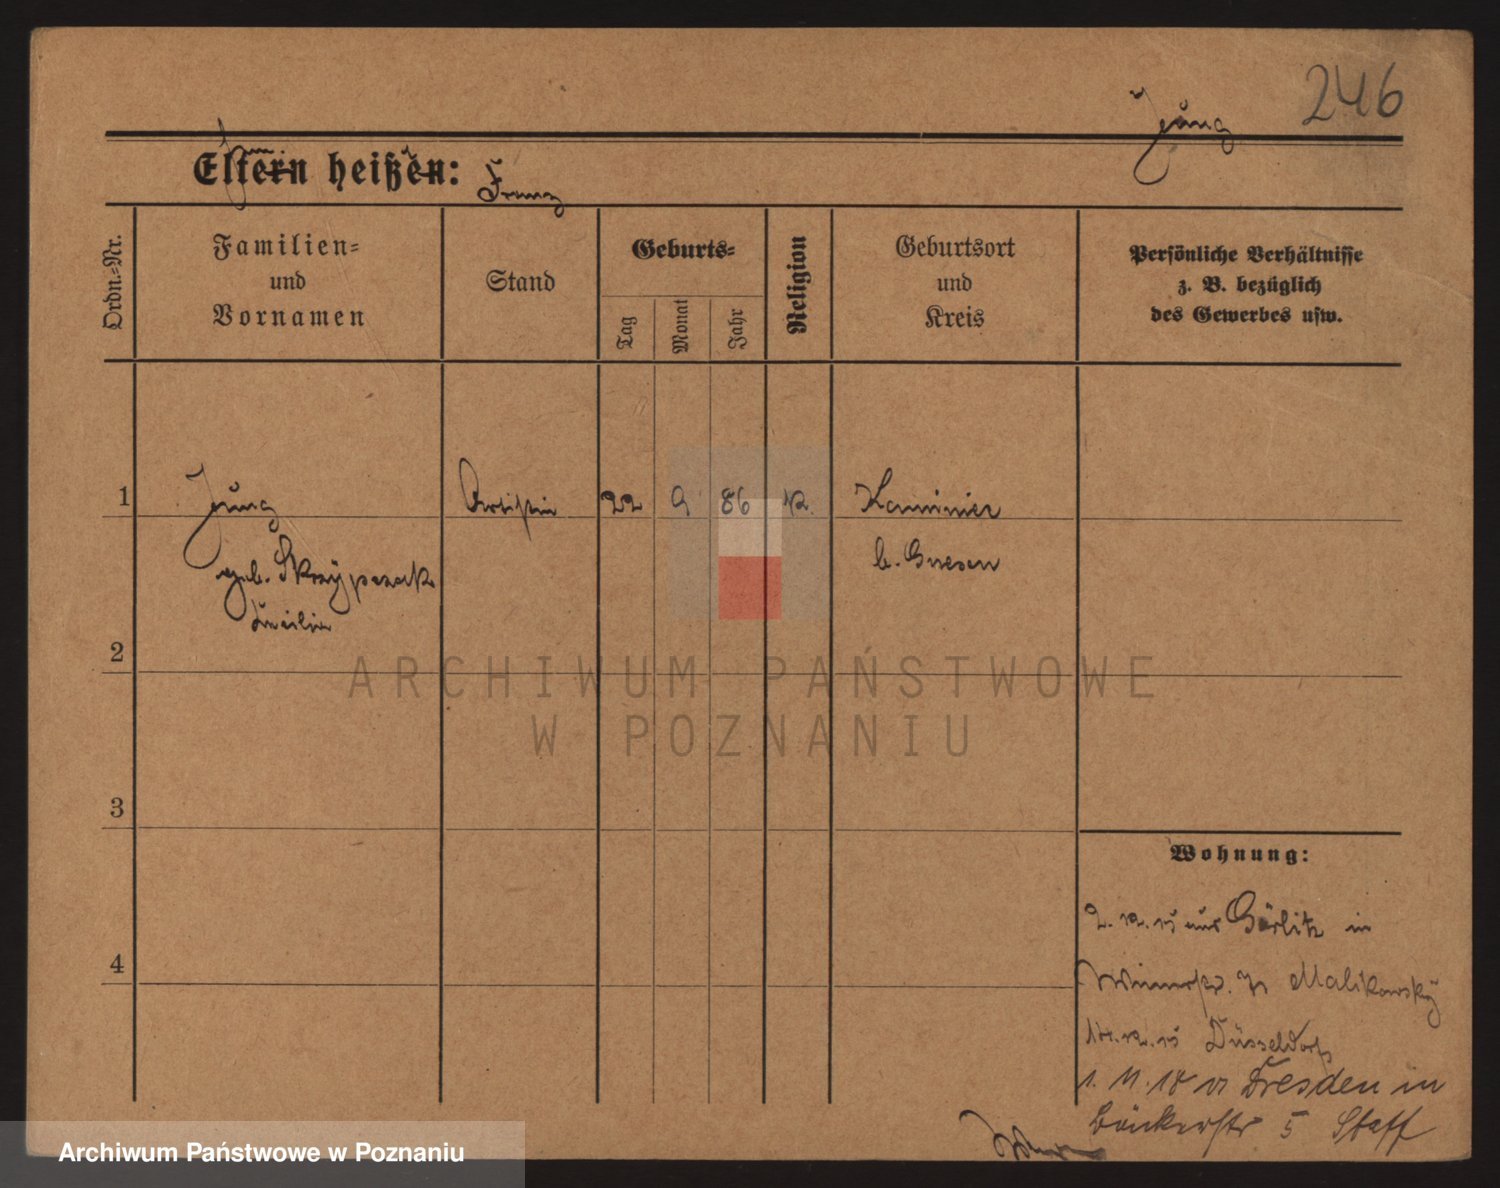 246
Jung
Eltern heißen: Franz
Ordn.-Nr.
Familien-
und
Vornamen
Stand
Geburts-
Tag
Monat
Jahr
Religion
Geburtsort
und
Kreis
Persönliche Verhältnisse
z. B. bezüglich
des Gewerbes usw.
1 Jung Artistin 22 9 86 K. Kaminiec
geb. Skrzypczak b. Gnesen
Cäcilie
2
ARCHIWUM PAŃSTWOWE
W POZNANIU
3
Wohnung:
aus Görlitz in
4
Malikowsky
Düsseldorf
1. 11. 18 Dresden in
Bäckerstr 5 Staff
Archiwum Państwowe w Poznaniu